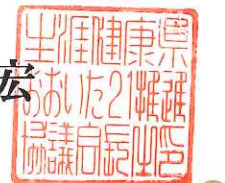 宏
生涯健康県
おおいた21推進
協議会長之印